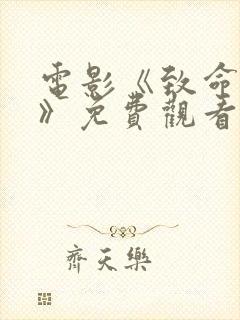 電影《致命
》免費觀看
齊天樂